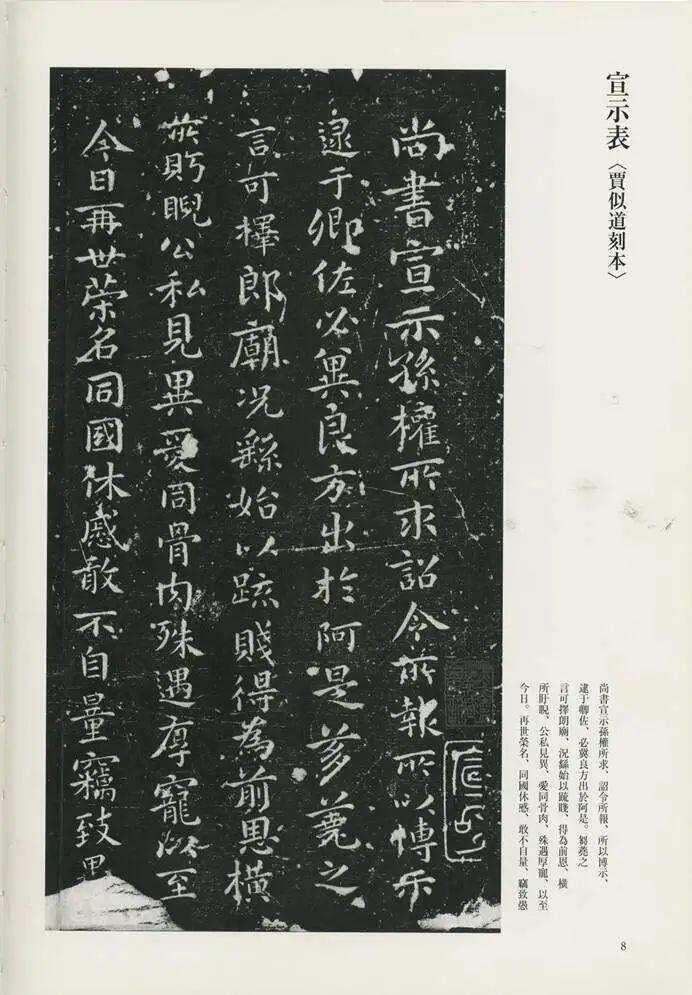 宣示表〈賈似道刻本〉
尚書宣示孫權所求詔令所報所以博示
逮于卿佐必冀良方出於阿是芻蕘之
言可擇郎廟況繇始以疏賤得為前恩橫
所眄睨公私見異愛同骨肉殊遇厚寵以至
今日再世榮名同國休慼敢不自量竊致愚
尚書宣示孫權所求、詔令所報、所以博示、
逮于卿佐、必冀良方出於阿是。芻蕘之
言可擇朗廟、況繇始以疏賤、得為前恩、橫
所盱睨、公私見異、愛同骨肉、殊遇厚寵、以至
今日。再世榮名、同國休慼、敢不自量、竊致愚
8